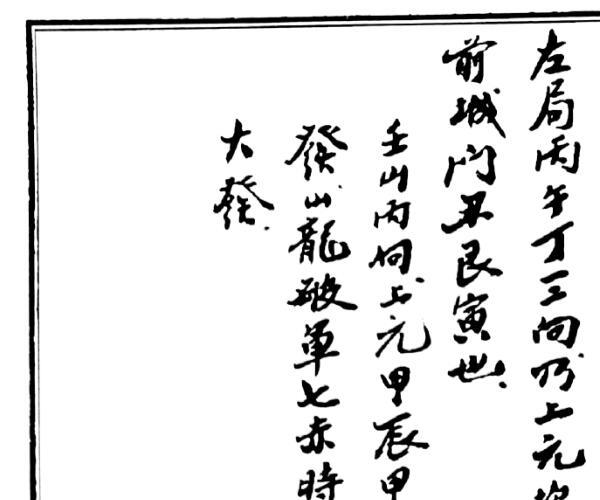 左局丙午丁三向乃上元
前城门丑艮寅也
壬山丙向上元甲辰甲
發山龍破軍七赤時
大發